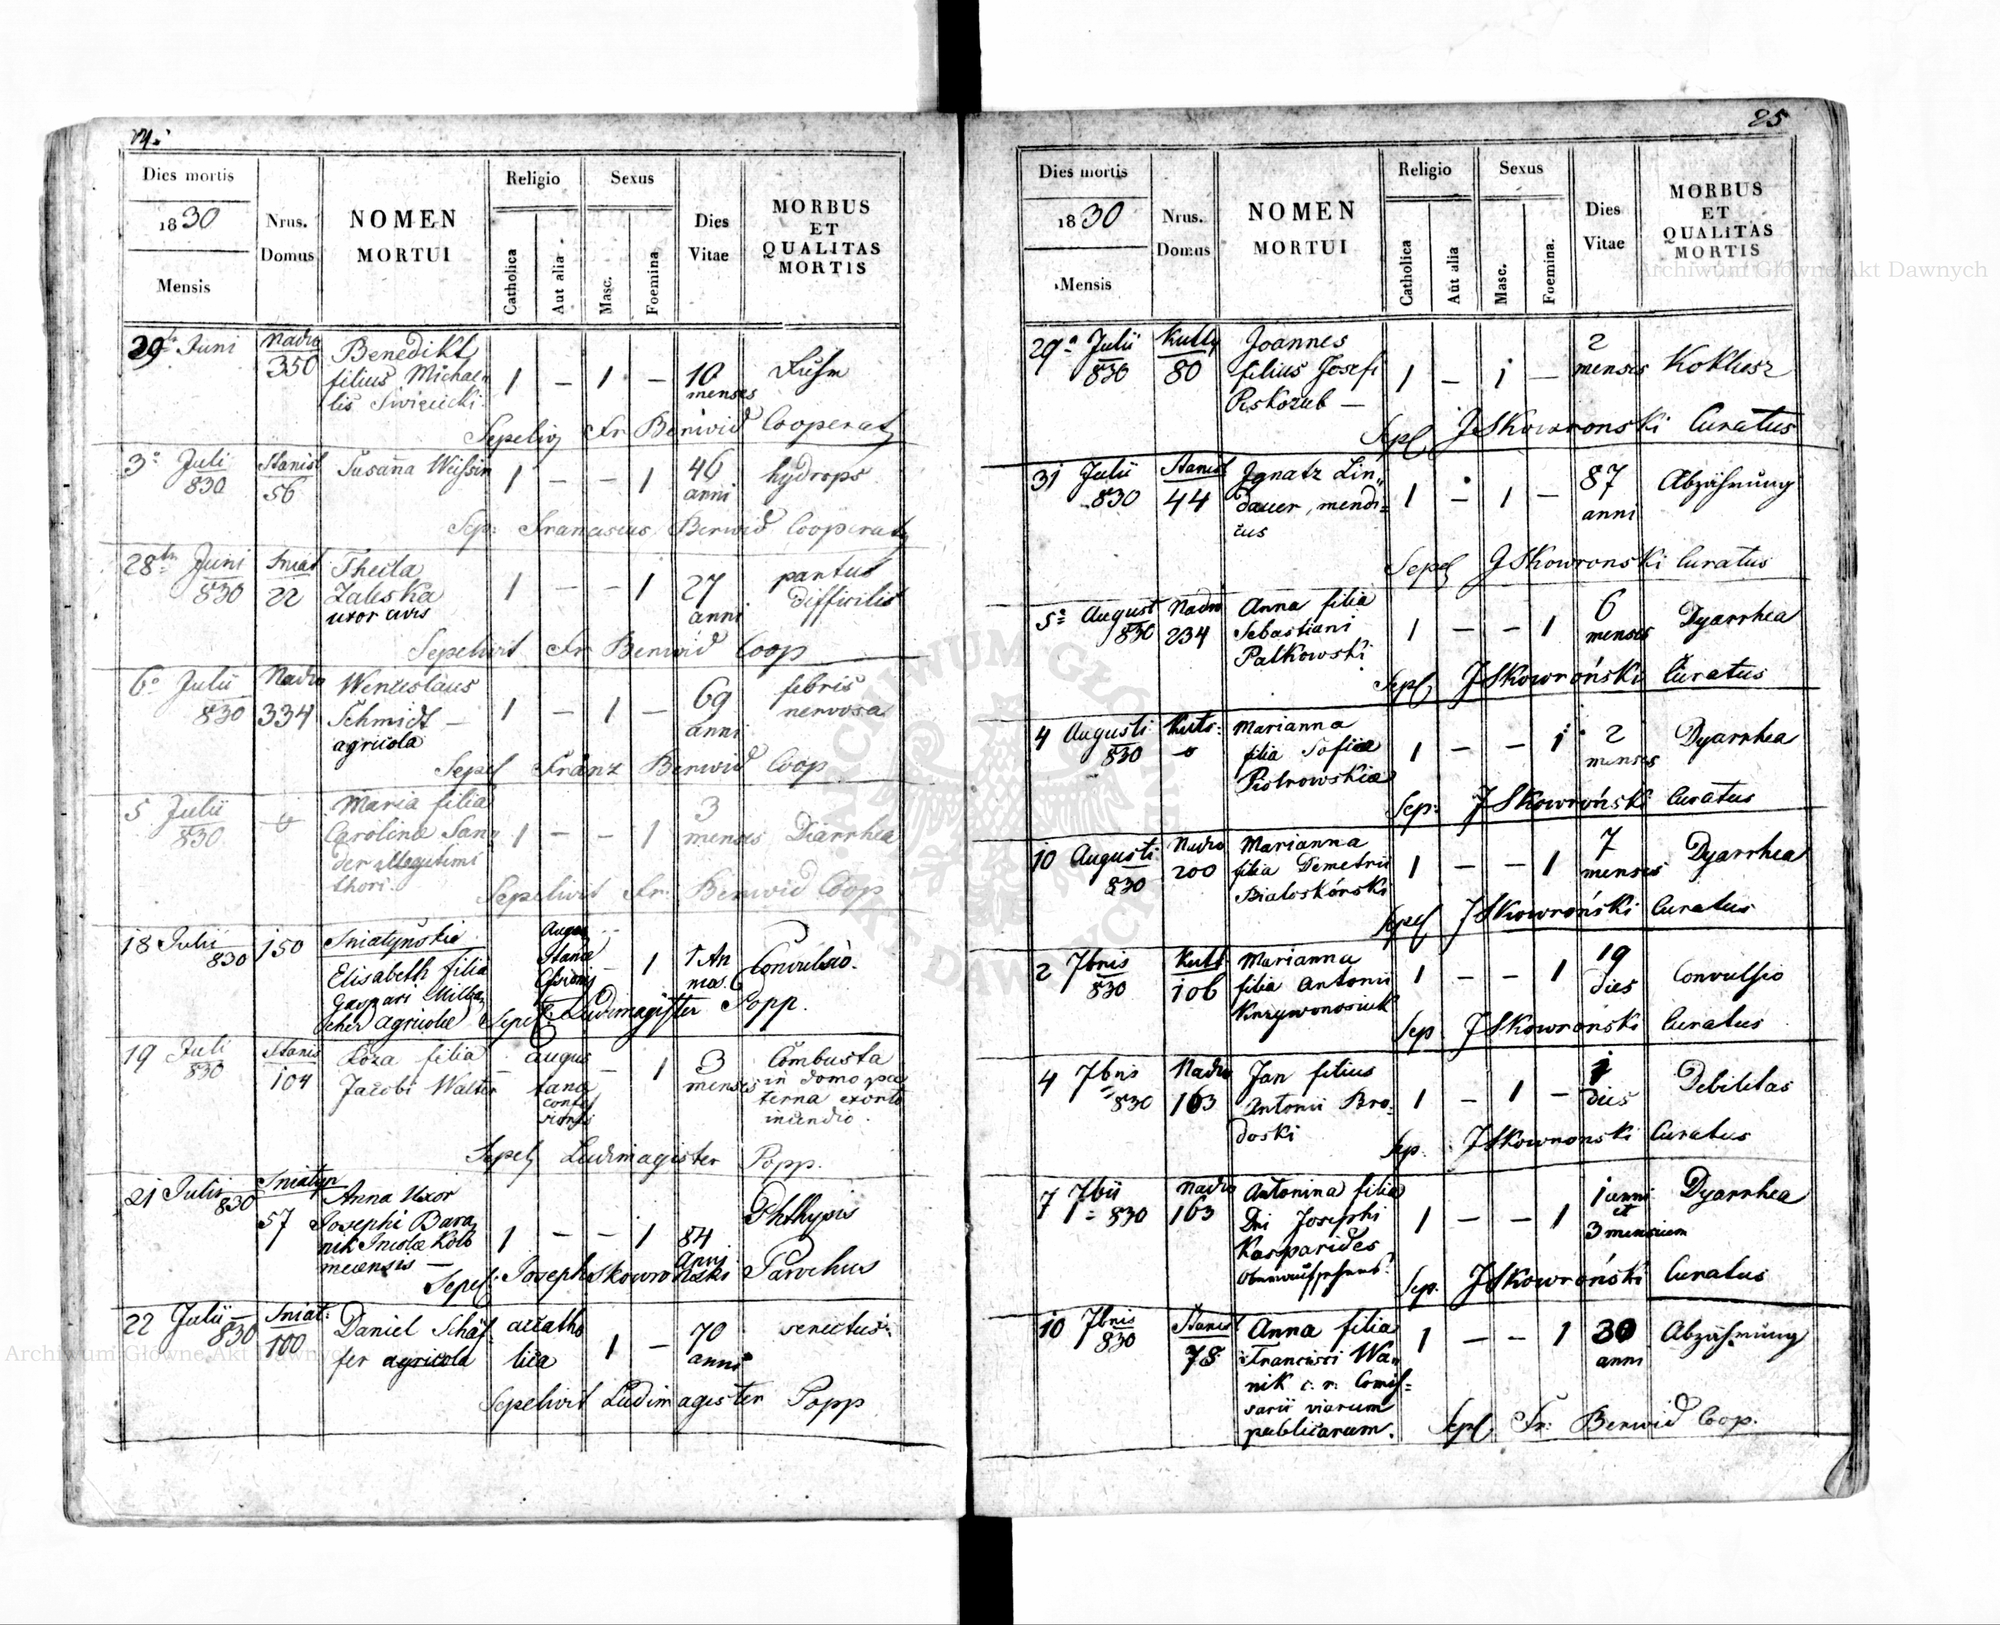 Dies mortis
1830
Mensis
Nrus. Domus
NOMEN MORTUI
Religio
Catholica
Aut alia
Sexus
Masc.
Foemina
Dies Vitae
MORBUS ET QUALITAS MORTIS
29 Juni
350
Benedikt
filius Michae-
lis
1 — 1 —
10
menses
Fr Berwid Cooperat
3a Juli
830
Stanisl
56
Susanna
1 — — 1
46
anni
hydrops
Sep: Franciscus Berwid Cooperat
28 Juni
830
Sniat
22
Thecla
Zaleska
uxor civis
1 — — 1
27
anni
partus
difficilis
Sepelivit Fr Berwid Coop
6a Julii
830
334
Wenceslaus
Schmidt —
agricola
1 — 1 —
69
anni
febris
nervosa
Sepel Franz Berwid Coop
5 Julii
830
Maria filia
Carolinae San
der illegitimi
thori.
1 — — 1
3
menses
Diarrhea
Sepelivit Fr: Berwid Coop
18 Julii
830
150
Elisabeth filia
Gaspari
agricolae
1
Convulsio.
Sepel: Ludimagister Popp.
19 Juli
830
Stanis
104
Roza filia
Jacobi Walter
augus
tana
confes
sionis
— 1
3
menses
Combusta
in domo pa
terna exorto
incendio.
Sepel Ludimagister Popp.
21 Julii
830
57
Anna Uxor
Josephi Bara
nik
1 — — 1
84
Anni
Phthysis
Sepel: Joseph Skowronski Parochus
22 Julii
830
Sniat:
100
Daniel Schäf
fer agricola
acatho
lica
1 —
70
anni
senectus
Sepelivit Ludimagister Popp
25
Dies mortis
1830
Mensis
Nrus. Domus
NOMEN MORTUI
Religio
Catholica
Aut alia
Sexus
Masc.
Foemina.
Dies Vitae
MORBUS ET QUALITAS MORTIS
29a Julii
830
Kutty
80
Joannes
filius Josefi
Piskozub —
1 — 1 —
2
menses
Koklusz
Sepl JSkowronski Curatus
31 Julii
830
Stanisl
44
Ignatz Lin„
dauer, mendi=
cus
1 — 1 —
87
anni
Abzährung
Sepel JSkowronski Curatus
5a August
830
234
Anna filia
Sebastiani
Palkowski
1 — — 1
6
menses
Dyarrhea
Sepl JSkowroński Curatus
4 Augusti
830
Marianna
filia Sofiae
Piotrowskia
1 — — 1
2
menses
Dyarrhea
Sep: JSkowroński Curatus
10 Augusti
830
200
Marianna
filia Demetrii
Bialoskórski
1 — — 1
7
menses
Dyarrhea
Sepel JSkowroński Curatus
2 7bris
830
Kutt
106
Marianna
filia Antonii
Krzywonosiuk
1 — — 1
19
dies
Convulsio
Sep JSkowroński Curatus
4 7bris
830
163
Jan filius
Antonii Bro-
doski
1 — 1 —
dies
Debilitas
Sep. JSkowronski Curatus
7 7bris
830
163
Antonina filia
Dni Josephi
Kasparides
1 — — 1
1 anni
et
3 mensium
Dyarrhea
Sep. JSkowroński Curatus
10 7bris
830
Stanisl
78
Anna filia
Francisci Wa-
nik c. r. Comis=
sarii viarum
publicarum.
1 — — 1
30
anni
Abzährung
Sepl Fr: Berwid Coop.
Archiwum Główne Akt Dawnych